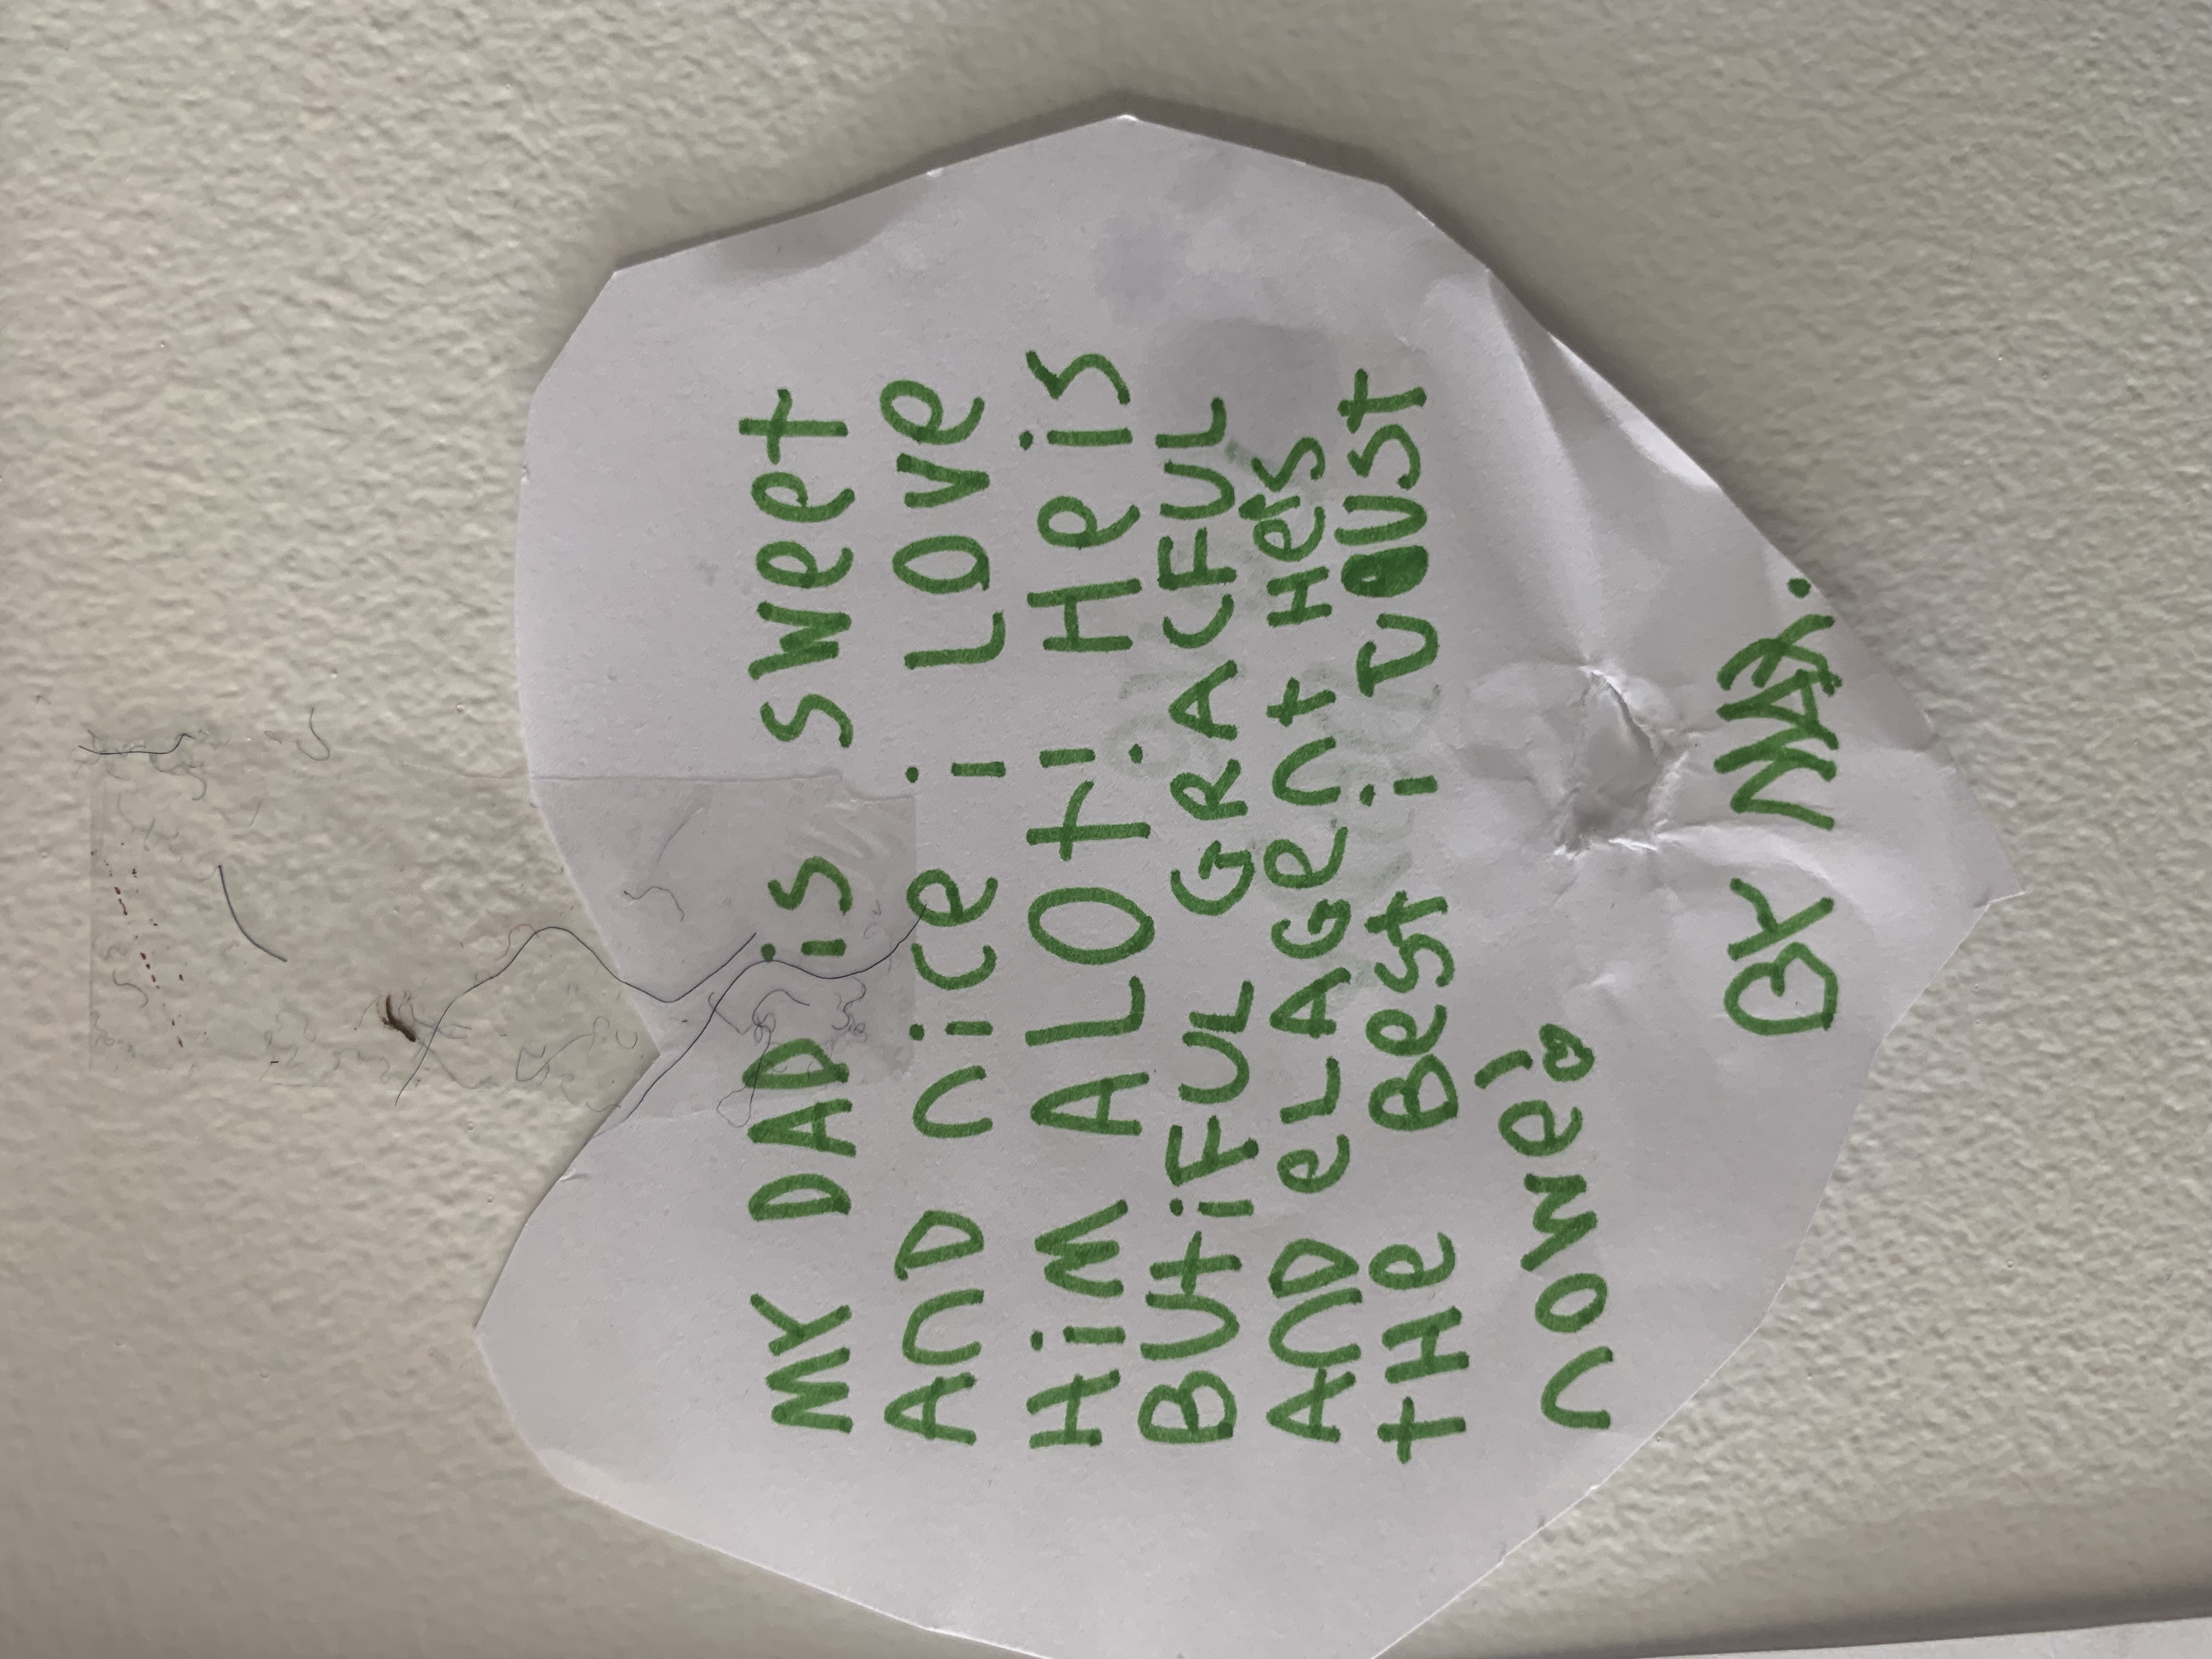 MY DAD is sweet
AnD nice i LOve
Him ALOt! He is
BUtiFUL GRACFUL
AnD eLAGent He's
tHe Best i JUst
nowe!
BY MAX.